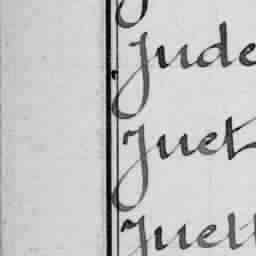 Jude
Juet
Juett